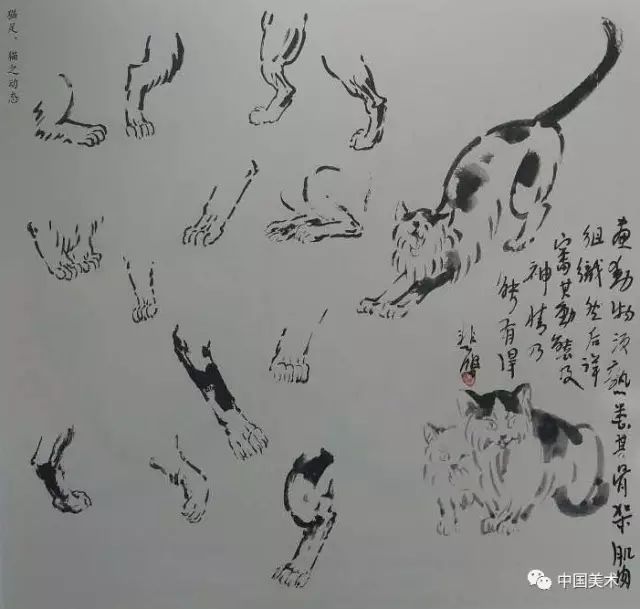 猫足、猫之动态
畫動物须熟悉其骨架肌肉
组織然后详
審其動態及
神情乃
能有得
悲鴻
中国美术